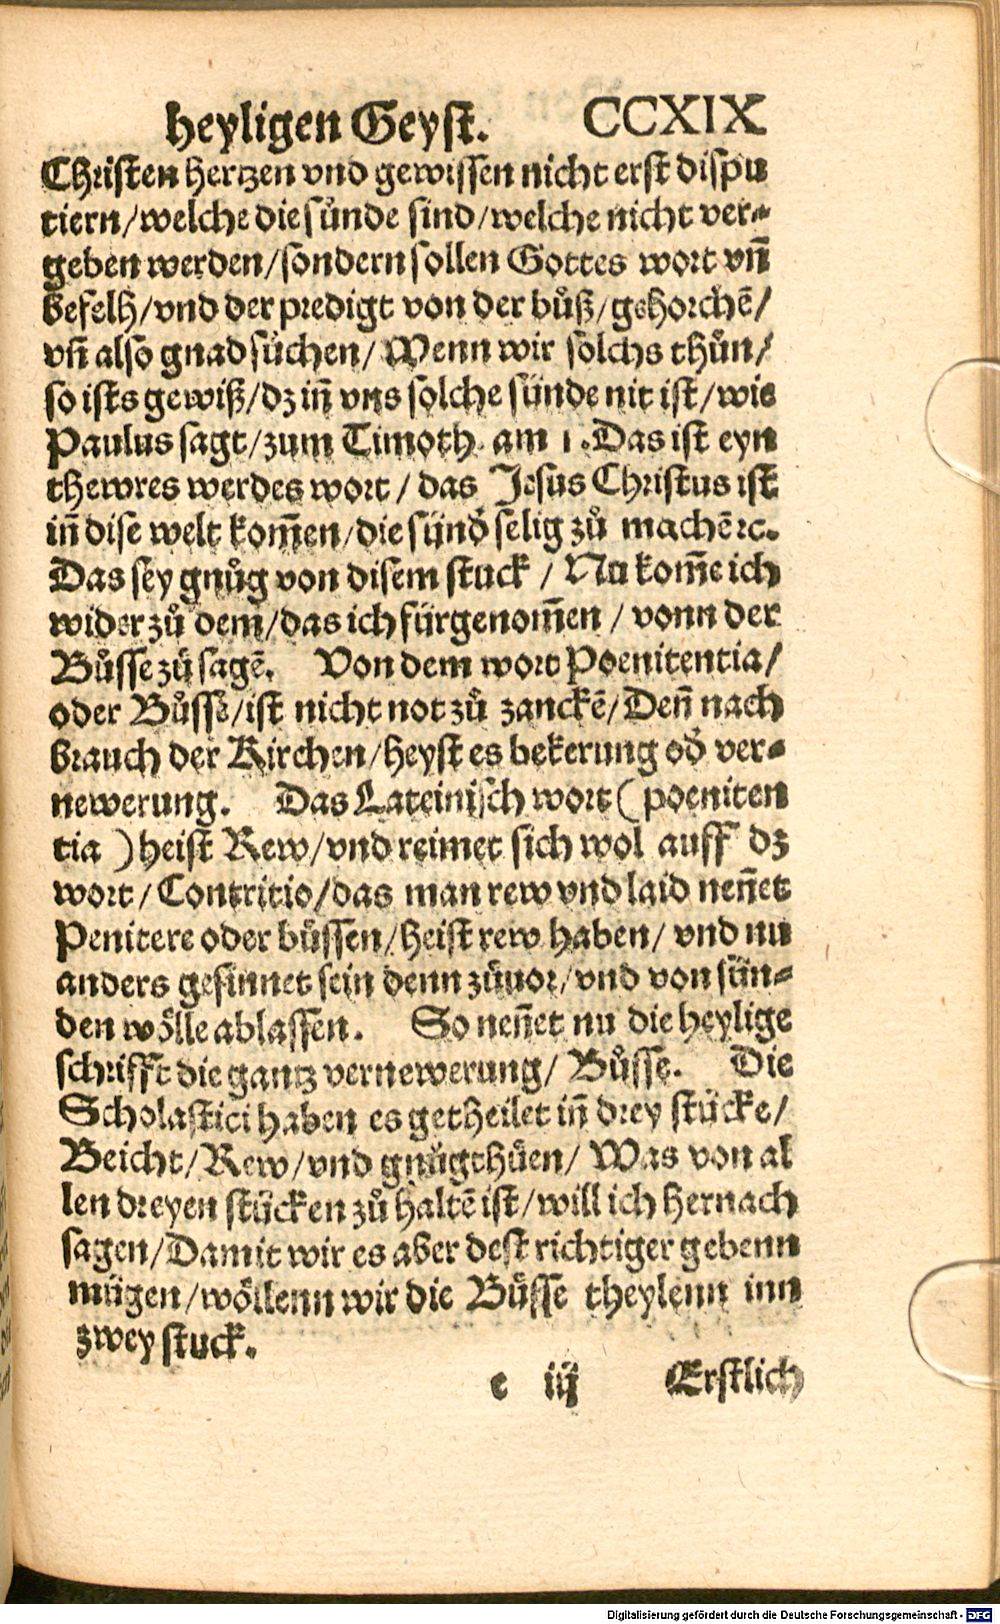 heyligen Geyst. CCXIX
Christen hertzen vnd gewissen nicht erst dispu
tiern/welche die sünde sind/welche nicht ver⸗
geben werden/sondern sollen Gottes wort vn̄
befelh/vnd der predigt von der bůß/gehorchē/
vn̄ also gnad süchen/Wenn wir solchs thůn/
so ists gewiß/dz in̄ vns solche sünde nit ist/wie
Paulus sagt/zum Timoth. am 1. Das ist eyn
thewres werdes wort/das Jesus Christus ist
in̄ dise welt kom̄en/die sünd̕ selig zů machē ꝛc.
Das sey gnůg von disem stuck/Nu kom̄e ich
wider zů dem/das ich fürgenom̄en/vonn der
Bůsse zů sagē. Von dem wort Poenitentia/
oder Bůsse/ist nicht not zů zanckē/Den̄ nach
brauch der Kirchen/heyst es bekerung od̕ ver⸗
newerung. Das Lateinisch wort (poeniten
tia) heist Rew/vnd reimet sich wol auff dz
wort/Contritio/das man rew vnd laid nen̄et
Penitere oder büssen/heist rew haben/vnd nu
anders gesinnet sein denn zůuor/vnd von sün⸗
den wölle ablassen. So nen̄et nu die heylige
schrifft die gantz vernewerung/Bůsse. Die
Scholastici haben es getheilet in̄ drey stücke/
Beicht/Rew/vnd gnůgthůen/Was von al
len dreyen stücken zů haltē ist/will ich hernach
sagen/Damit wir es aber dest richtiger gebenn
mügen/wöllenn wir die Bůsse theylenn inn
zwey stuck.
e iij Erstlich
Digitalisierung gefördert durch die Deutsche Forschungsgemeinschaft - DFG